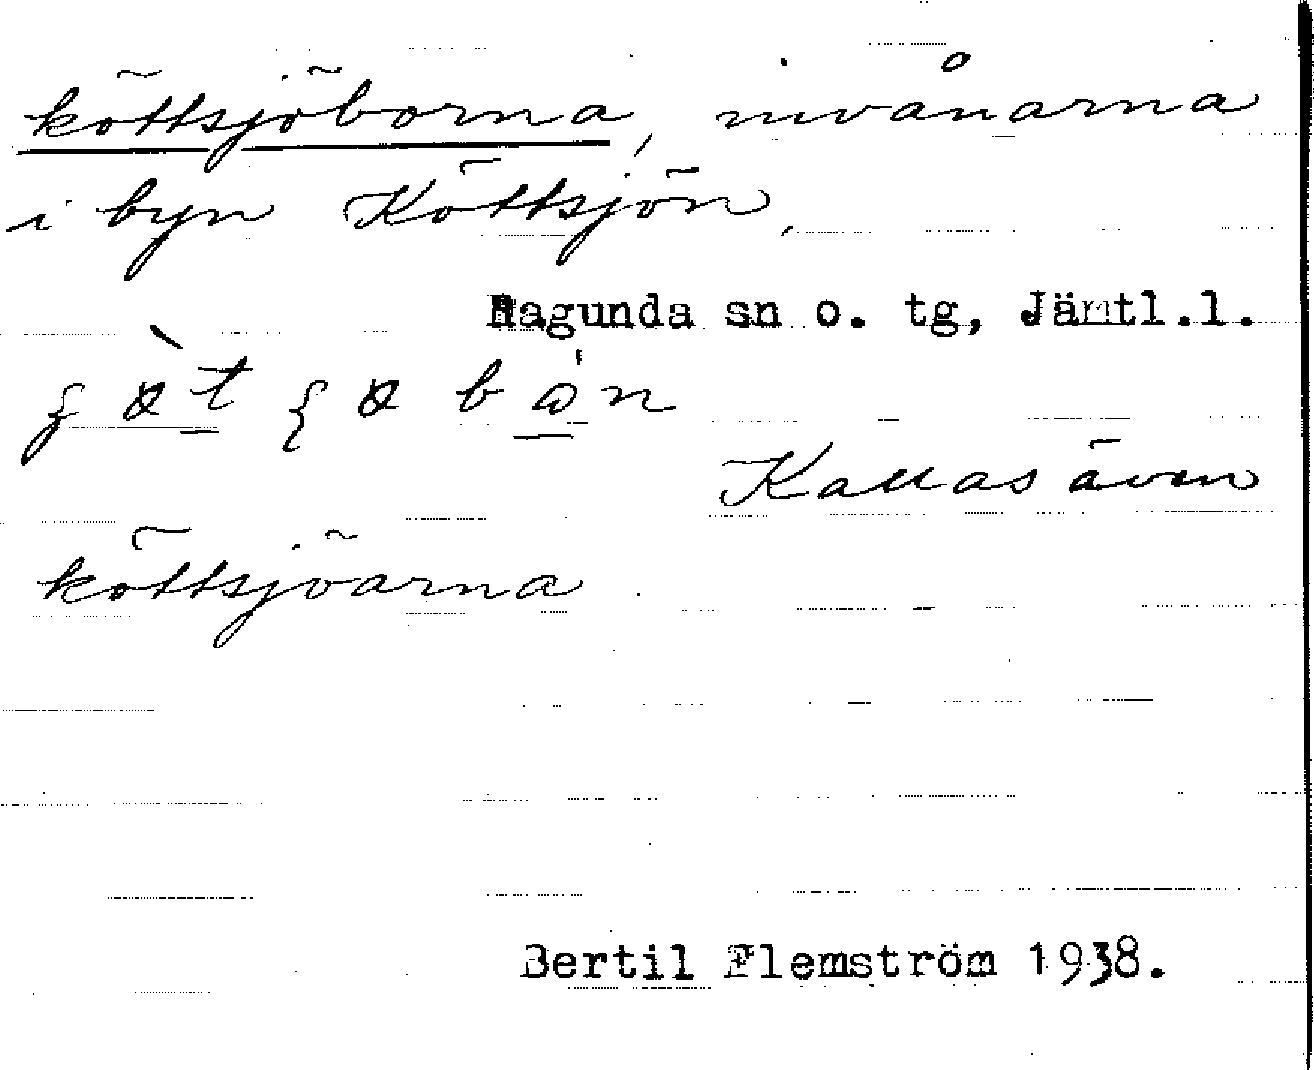 köttsjöborna, invånarna
i byn Köttsjön.
Ragunda sn o. tg, Jämtl.l.
Kallas även
köttsjöarna
Bertil Flemström 1938.